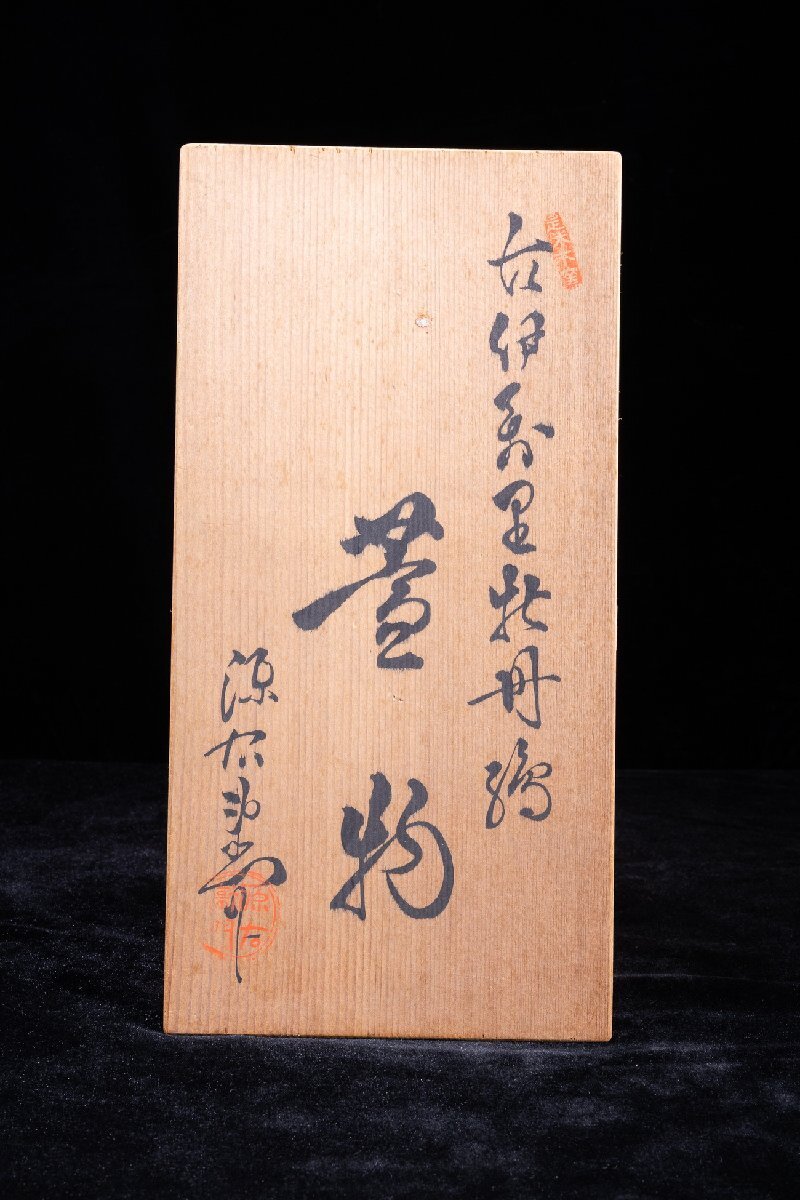 古伊万里牡丹濃
蓋物
源右衛門